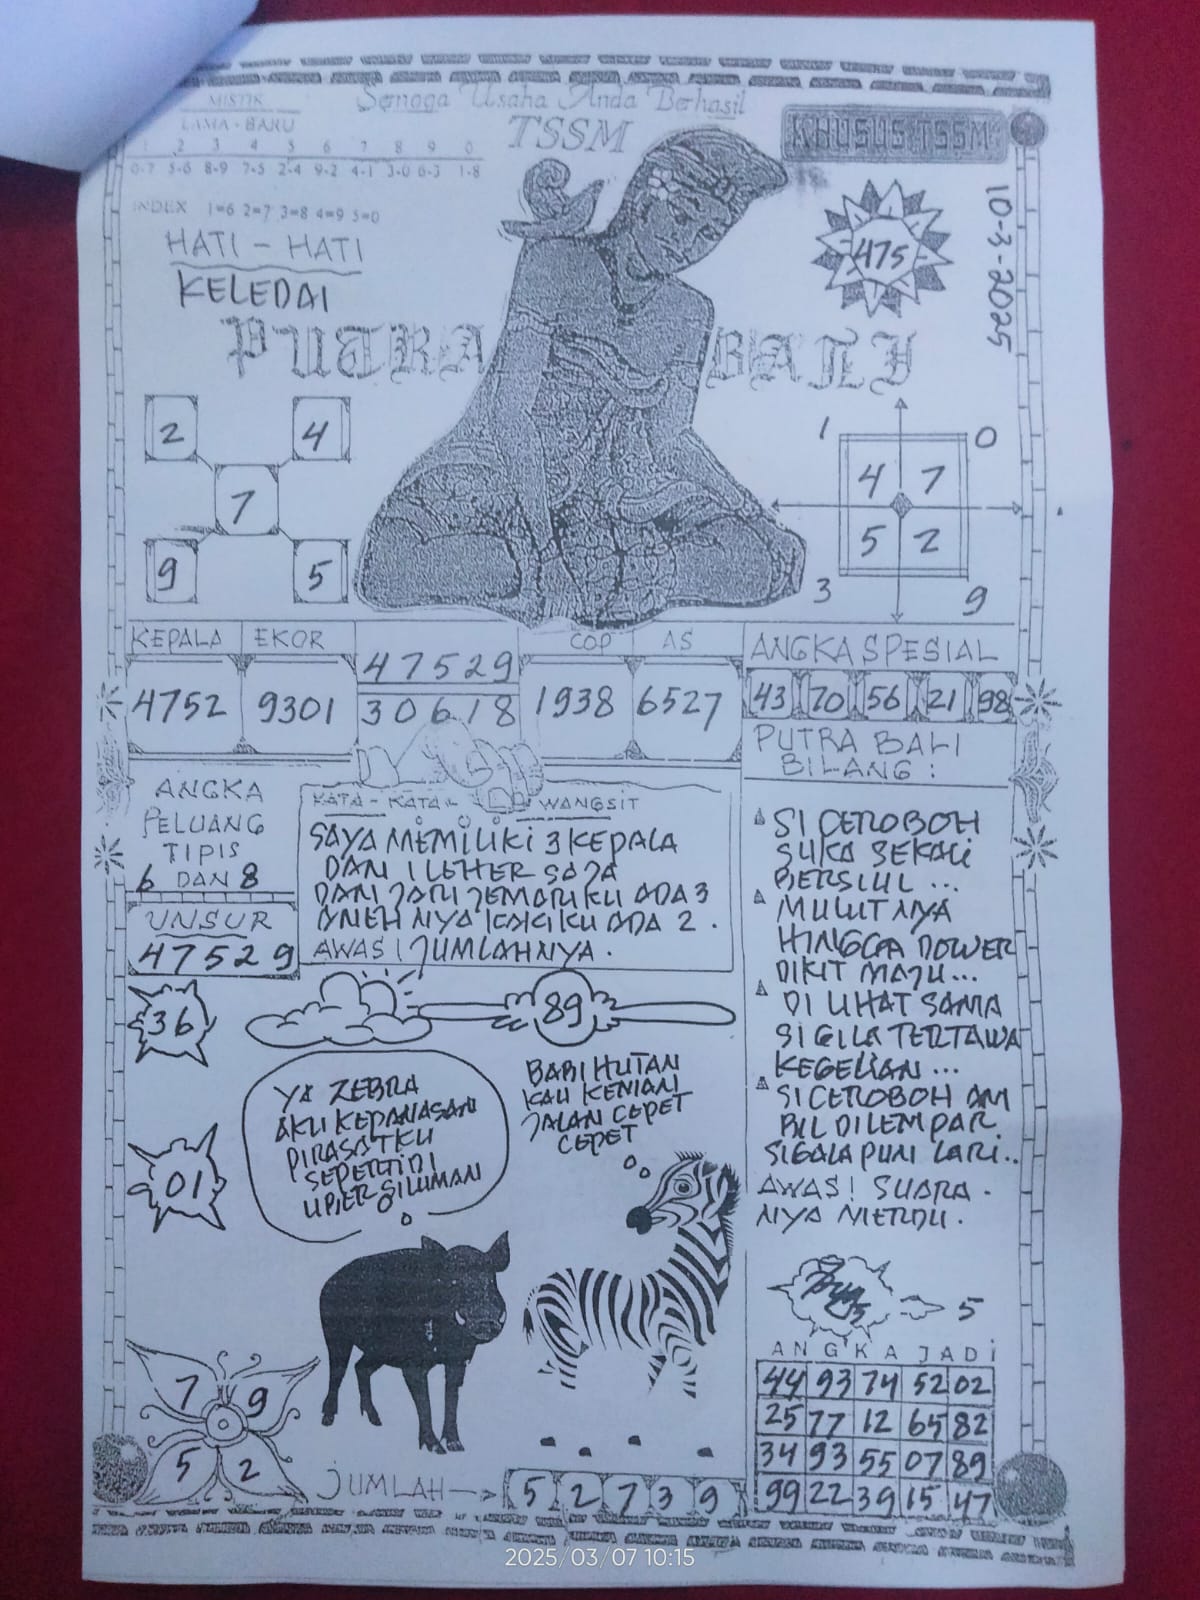 MISTIK
LAMA - BARU
1 2 3 4 5 6 7 8 9 0
0-7 5-6 8-9 7-5 2-4 9-2 4-1 3-0 6-3 1-8
INDEX 1=6 2=7 3=8 4=9 5=0
Semoga Usaha Anda Berhasil
TSSM
KHUSUS TSSM
10-3-2025
HATI - HATI
KELEDAI
475
PUTRA BALI
2 4
7
9 5
1 0
4 7
5 2
3 9
KEPALA EKOR COP AS
4752 9301 47529 1938 6527
30618
ANGKA SPESIAL
43 70 56 21 98
ANGKA
PELUANG
TIPIS
6 DAN 8
UNSUR
47529
KATA - KATA WANGSIT
SAYA MEMILIKI 3 KEPALA
DAN 1 LEHER SAJA
DAN JARI JEMARIKU ADA 3
ANEH NYA KAKIKU ADA 2.
AWAS! JUMLAHNYA.
PUTRA BALI
BILANG :
SI CEROBOH
SUKA SEKALI
BERSIUL ...
MULUT NYA
HINGGA DOWER
DIKIT MAJU...
DI LIHAT SAMA
SI GILA TERTAWA
KEGELIAN ...
SI CEROBOH AM
BIL DILEMPAR
SIGALA PUN LARI..
AWAS! SUARA.
NYA MERDU.
36
89
01
YA ZEBRA
AKU KEPANASAN
PIRASATKU
SEPERTI DI
UBER SILUMAN
BABI HUTAN
KAU KENIANI
JALAN CEPET
CEPET
5
ANGKA JADI
44 93 74 52 02
25 77 12 65 82
34 93 55 07 89
99 22 39 15 47
7 9
5 2
JUMLAH 5 2 7 3 9
2025/03/07 10:15